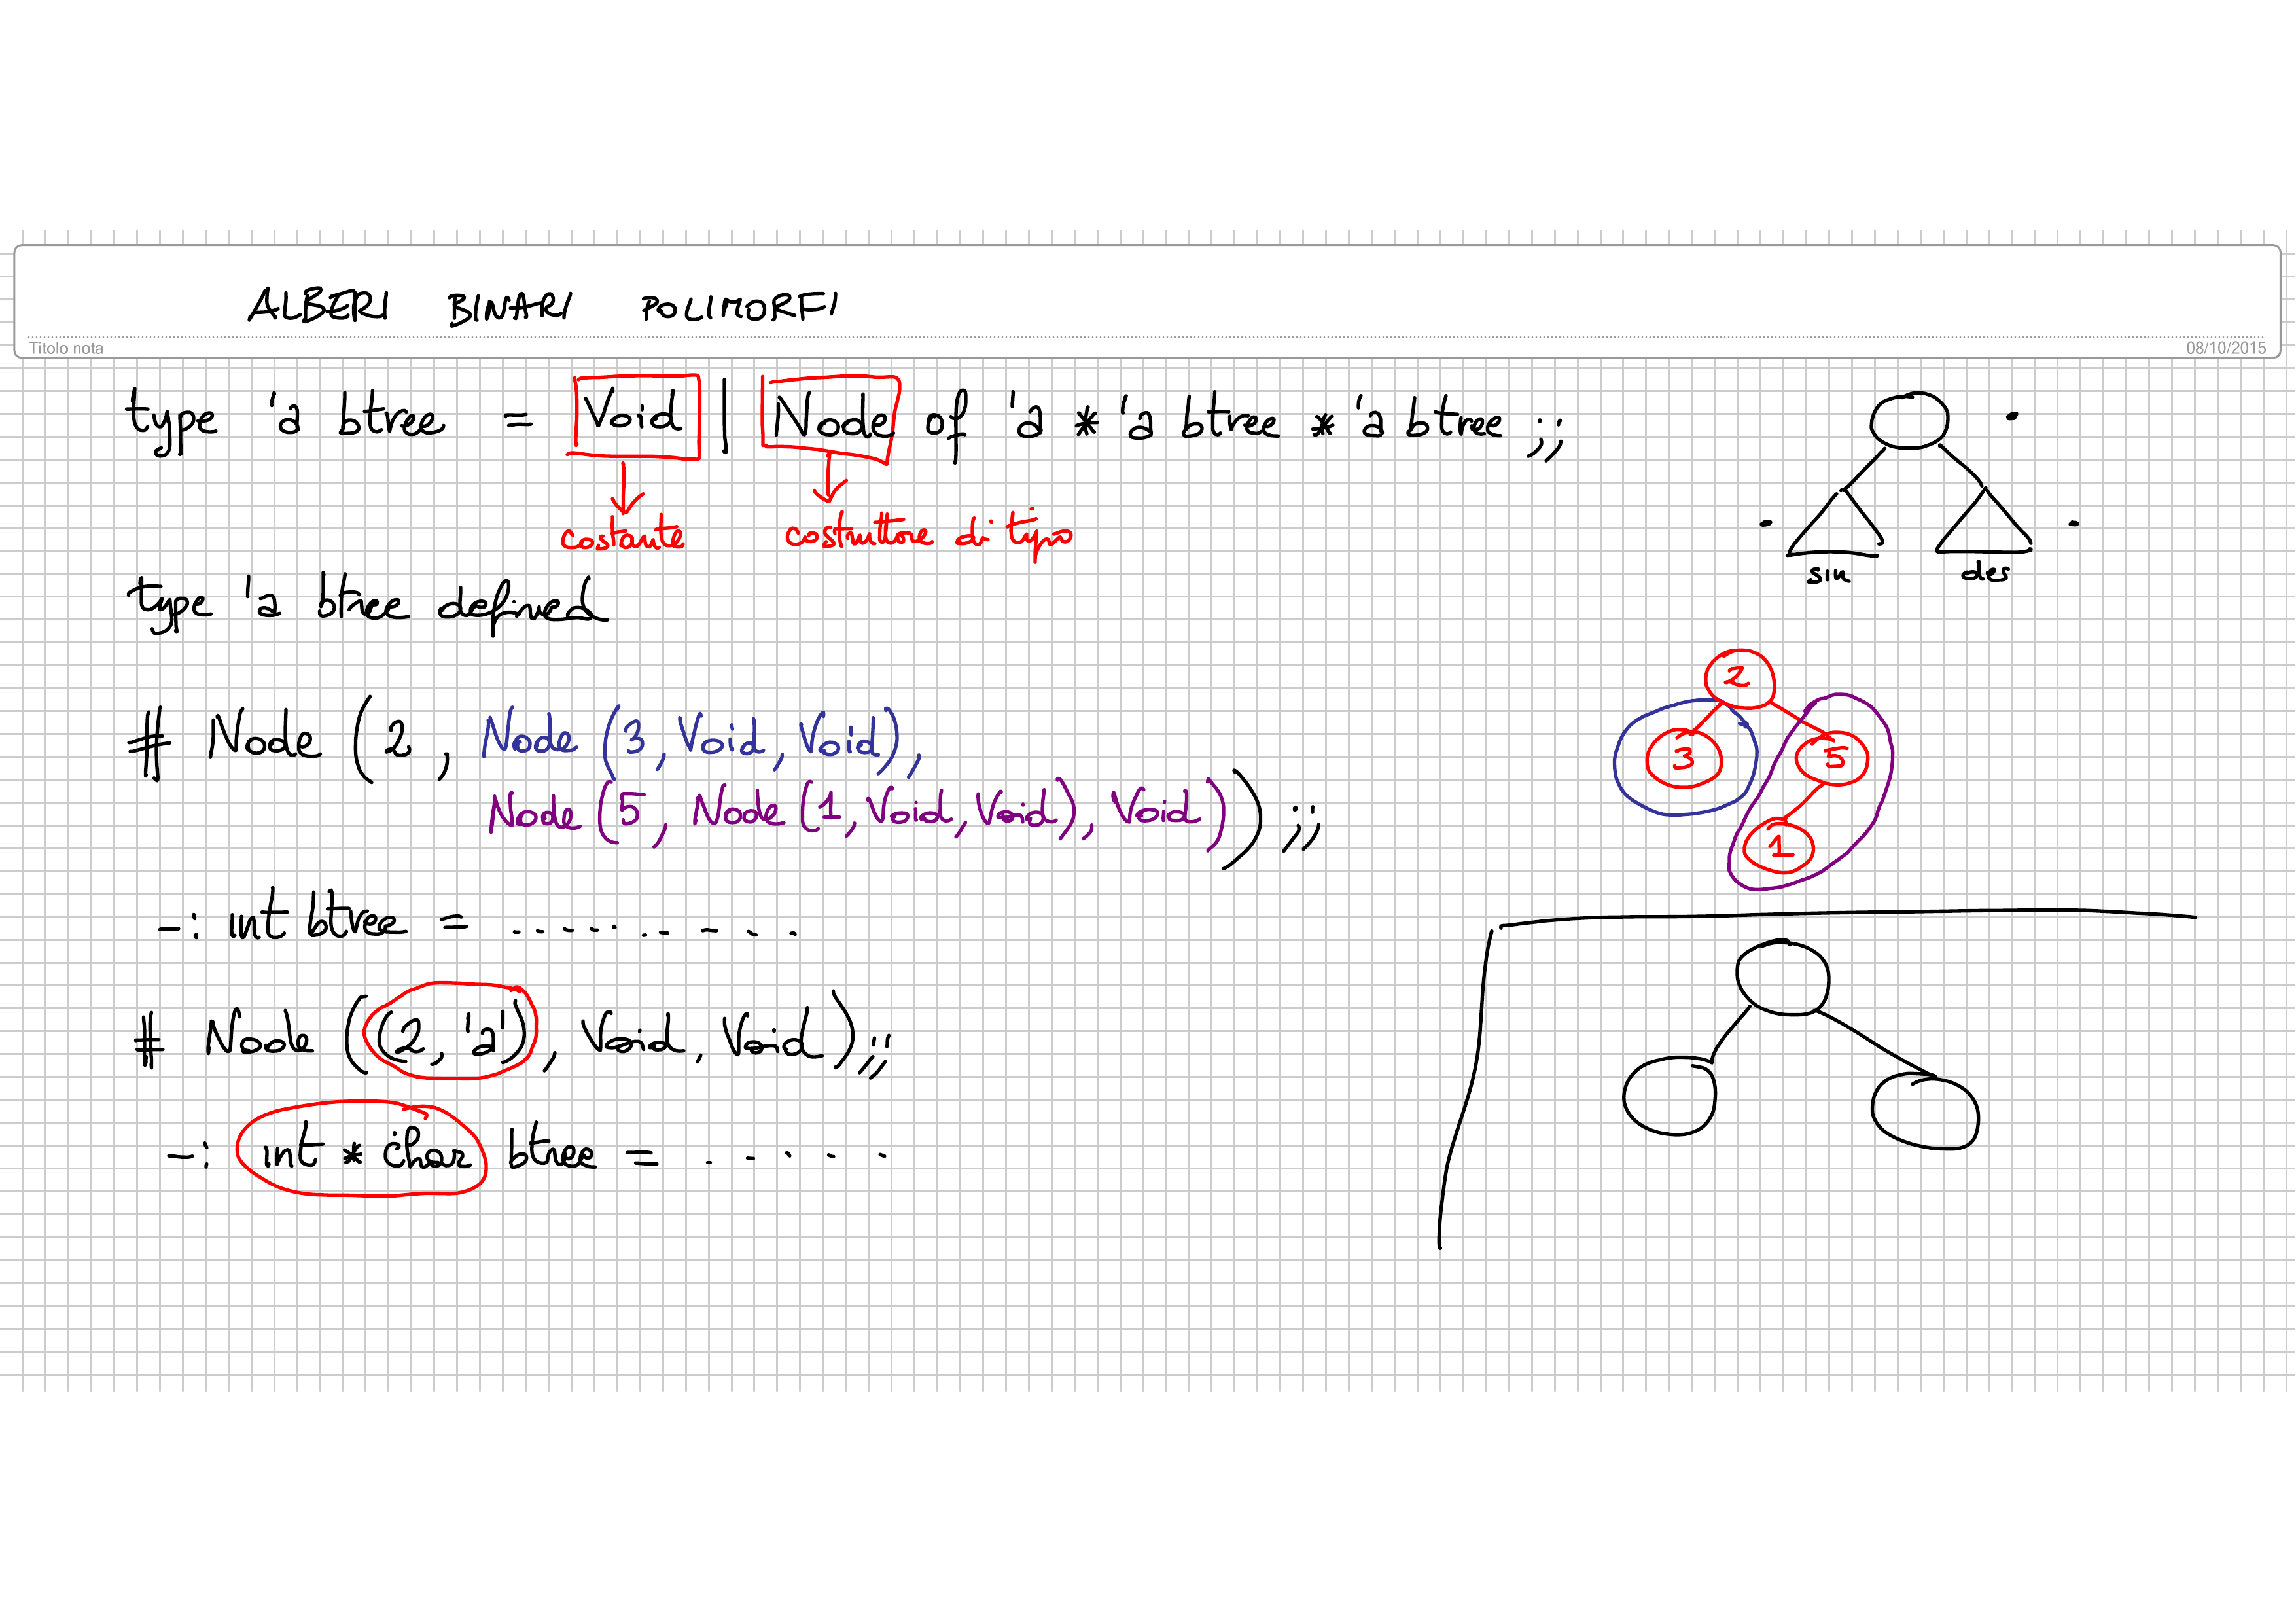 ALBERI BINARI POLIMORFI
Titolo nota
08/10/2015
type 'a btree = Void | Node of 'a * 'a btree * 'a btree ;;
costante costruttore di tipo
sin des
type 'a btree defined
# Node (2, Node (3, Void, Void),
Node (5, Node (1, Void, Void), Void));;
2
3 5
1
-: int btree = ..........
# Node ((2, 'a'), Void, Void);;
-: int * char btree = .....